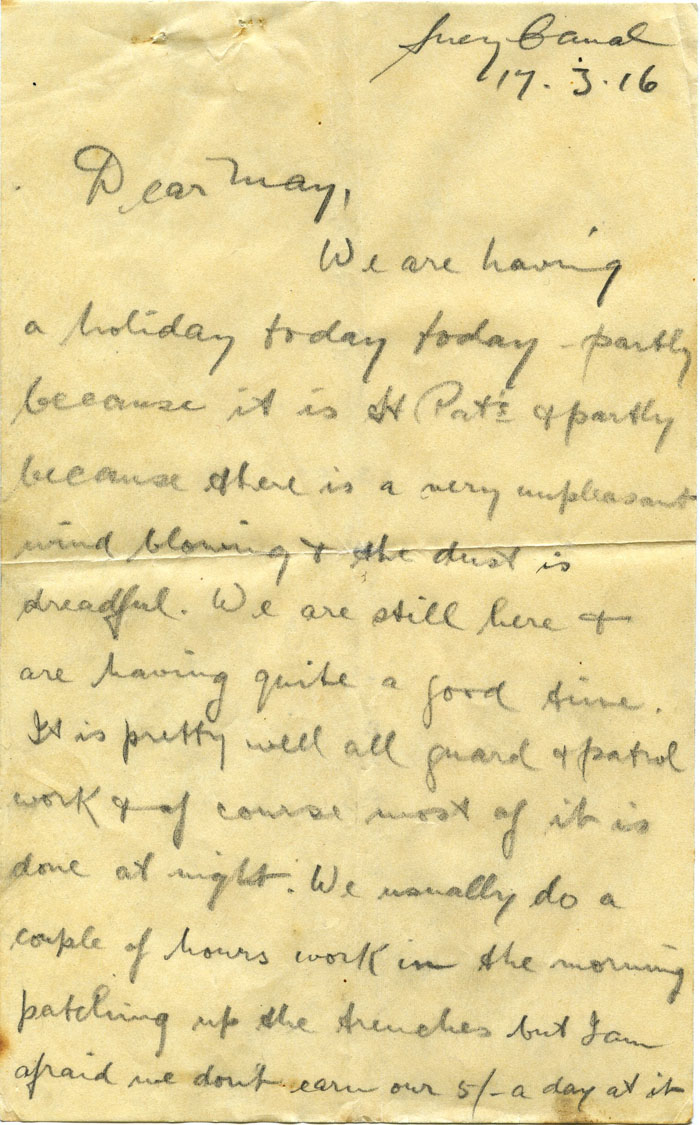 Suez Canal
17.3.16
Dear May,
We are having
a holiday today today - partly
because it is St Pat's & partly
because there is a very unpleasant
wind blowing & the dust is
dreadful. We are still here &
are having quite a good time.
It is pretty well all guard & patrol
work & of course most of it is
done at night. We usually do a
couple of hours work in the morning
patching up the trenches but I am
afraid we dont earn our 5/- a day at it